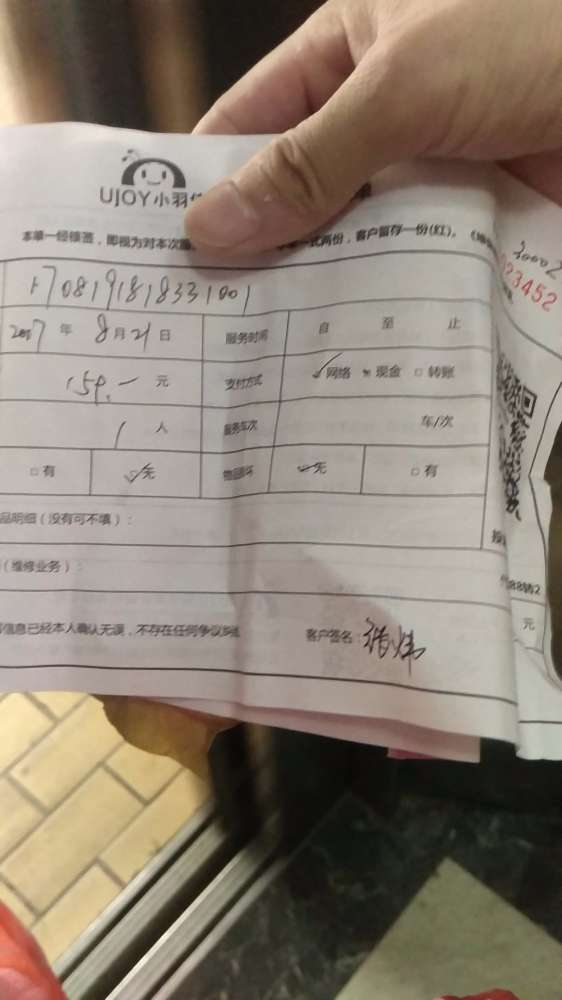 UJOY小羽
本单一经核签，即视为对本次服
单一式两份，客户留存一份(红)。
30002
023452
1708191818331001
2017年8月21日 服务时间 自 至 止
159.一元 支付方式 网络 现金 转账
1人 服务车次 车/次
有 无 物品损坏 无 有
品明细（没有可不填）：
（维修业务）：
88转2
元
信息已经本人确认无误，不存在任何争议
客户签名：张炜